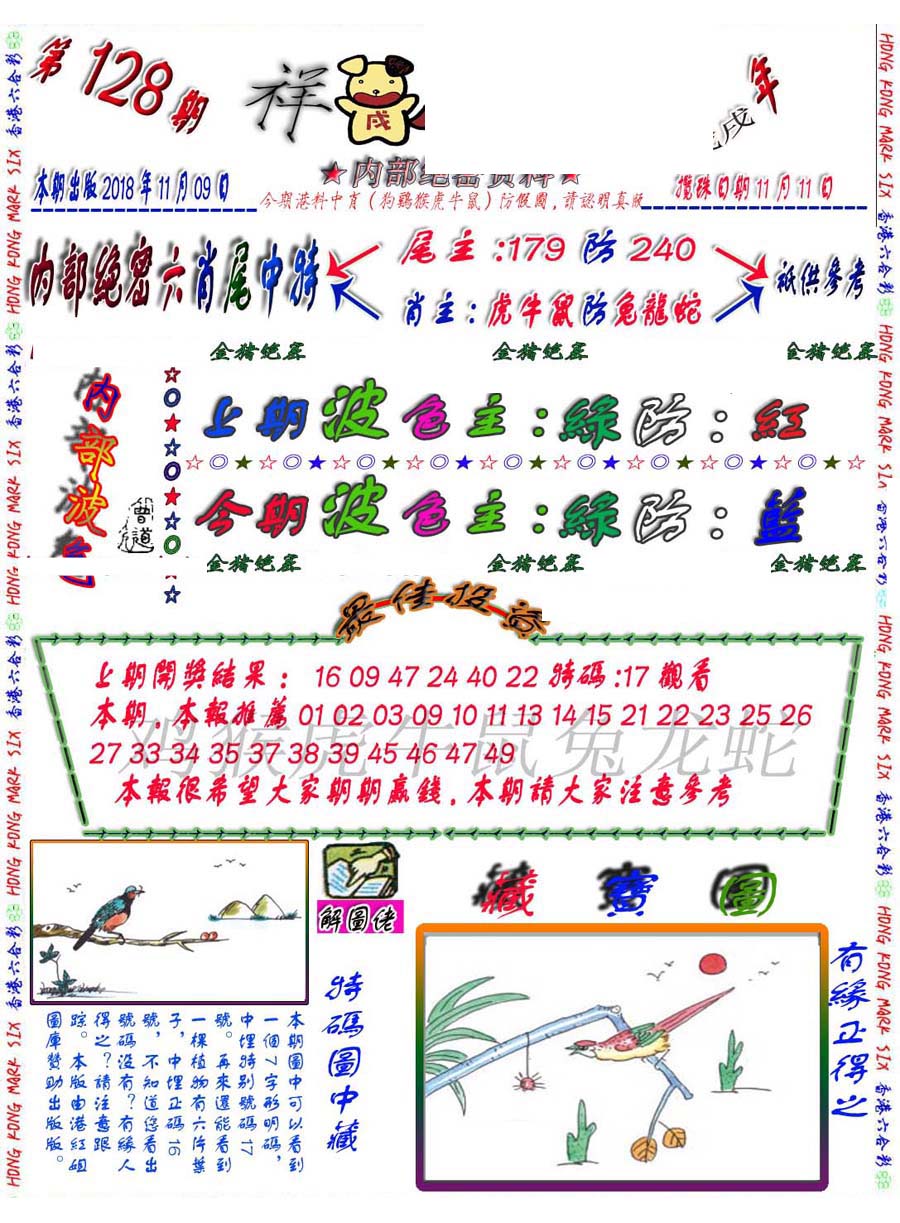 第128期
祥
戌
年
戊戌
★内部绝密资料★
本期出版2018年11月09日
今期港料中肖（狗鷄猴虎牛鼠）防假圖，請認明真版
攪珠日期11月11日
内部絶密六肖尾中特
尾主:179防240
肖主:虎牛鼠防兔龍蛇
衹供參考
金猪绝密 金猪绝密 金猪绝密
内部波色
曾道
上期波色主:綠防:紅
☆◎★☆◎★☆◎★☆◎★☆◎★☆◎★☆◎★☆◎★☆
今期波色主:綠防:藍
金猪绝密 金猪绝密 金猪绝密
最佳投资
上期開獎結果: 16 09 47 24 40 22 特碼:17 觀看
本期.本報推薦 01 02 03 09 10 11 13 14 15 21 22 23 25 26
27 33 34 35 37 38 39 45 46 47 49
鸡猴虎牛鼠兔龙蛇
本報很希望大家期期贏錢.本期請大家注意參考
解圖佬
藏寶圖
特碼圖中藏
有緣正得之
本期圖中可以看到
一個7字形明碼，
中埋特别號碼17
號。再來還能看到
一棵植物有六片葉
子，中埋正碼16
號，不知道您看出
號碼没有？有緣人
得之？請注意跟
踪。本版由港紅姐
圖庫贊助出版版。
香港六合彩 HONG KONG MARK SIX 香港六合彩 HONG KONG MARK SIX 香港六合彩 HONG KONG MARK SIX 香港六合彩 HONG KONG MARK SIX
HONG KONG MARK SIX 香港六合彩 HONG KONG MARK SIX 香港六合彩 HONG KONG MARK SIX 香港六合彩 HONG KONG MARK SIX 香港六合彩